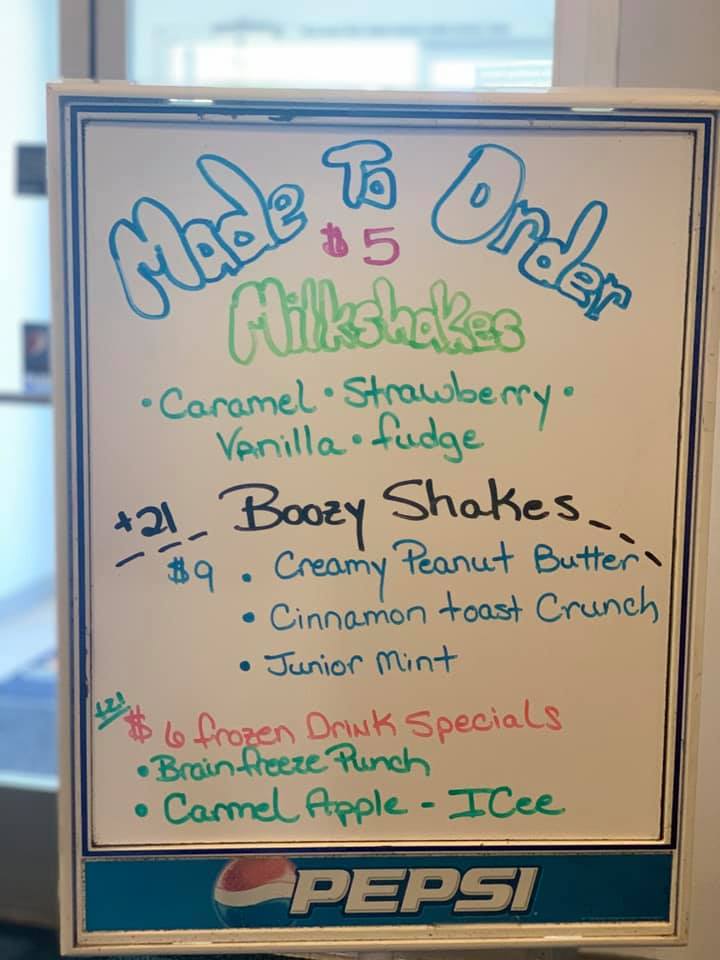 Made To Order
$5
Milkshakes
• Caramel • Strawberry •
Vanilla • fudge
+21 Boozy Shakes
$9 • Creamy Peanut Butter
• Cinnamon toast Crunch
• Junior Mint
+21
$6 frozen Drink Specials
• Brainfreeze Punch
• Carmel Apple - ICee
PEPSI